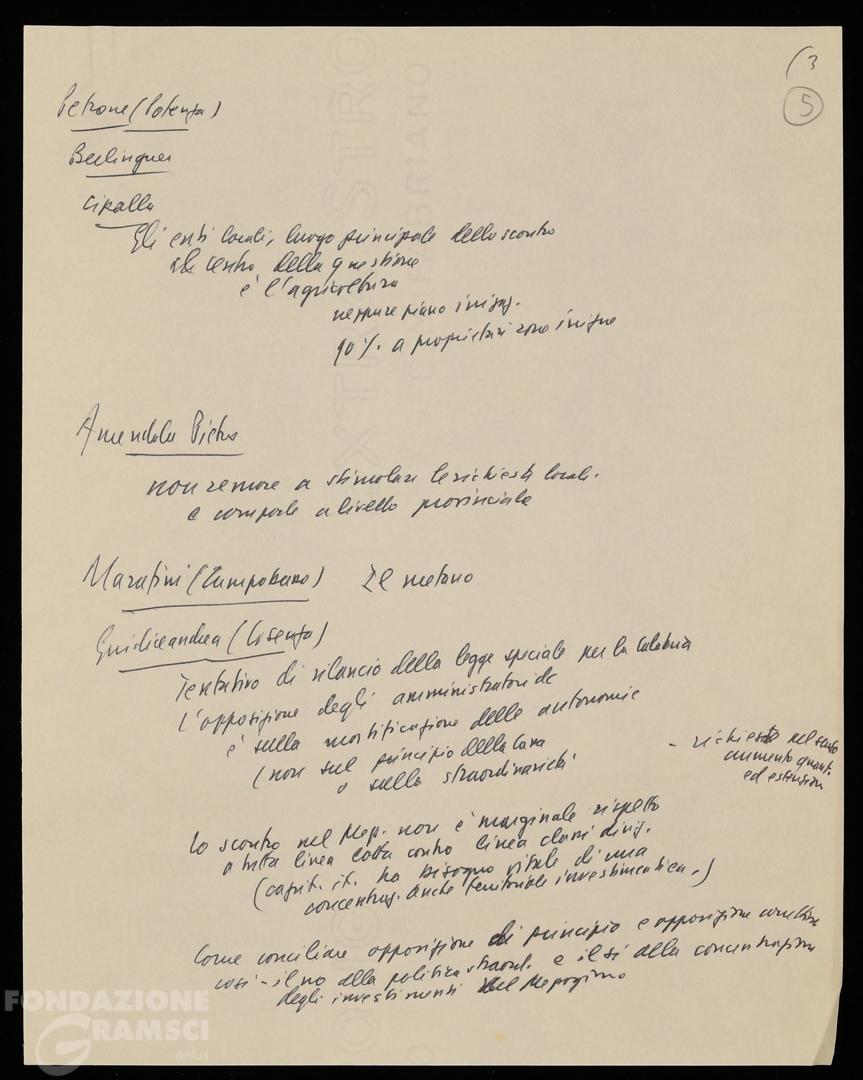 (3
5
Petrone (Potenza)
Berlinguer
Cipolla
Gli enti locali, luogo principale dello scontro
Il centro della questione
è l'agricoltura
neppure piano irrig.
90%. a proprietari zone irrigue
Amendola Pietro
non remore a stimolare le richieste locali.
e comporle a livello provinciale
Marafini (Campobasso) Il metano
Giudiceandrea (Cosenza)
Tentativo di rilancio della legge speciale per la Calabria
L'opposizione degli amministratori dc
è sulla mortificazione delle autonomie
(non sul principio della Cassa
o sulla straordinarietà
- richieste nel senso
aumento quant.
ed estension
Lo scontro nel Mezz. non è marginale rispetto
a tutta linea lotta contro linea classi dirig.
(capit. it. ha bisogno vitale di una
concentraz. anche territoriale investimenti)
Come conciliare opposizione di principio e opposizione
così - il no alla politica straord. e il sì alla concentrazione
degli investimenti nel Mezzogiorno
FONDAZIONE
GRAMSCI
onlus